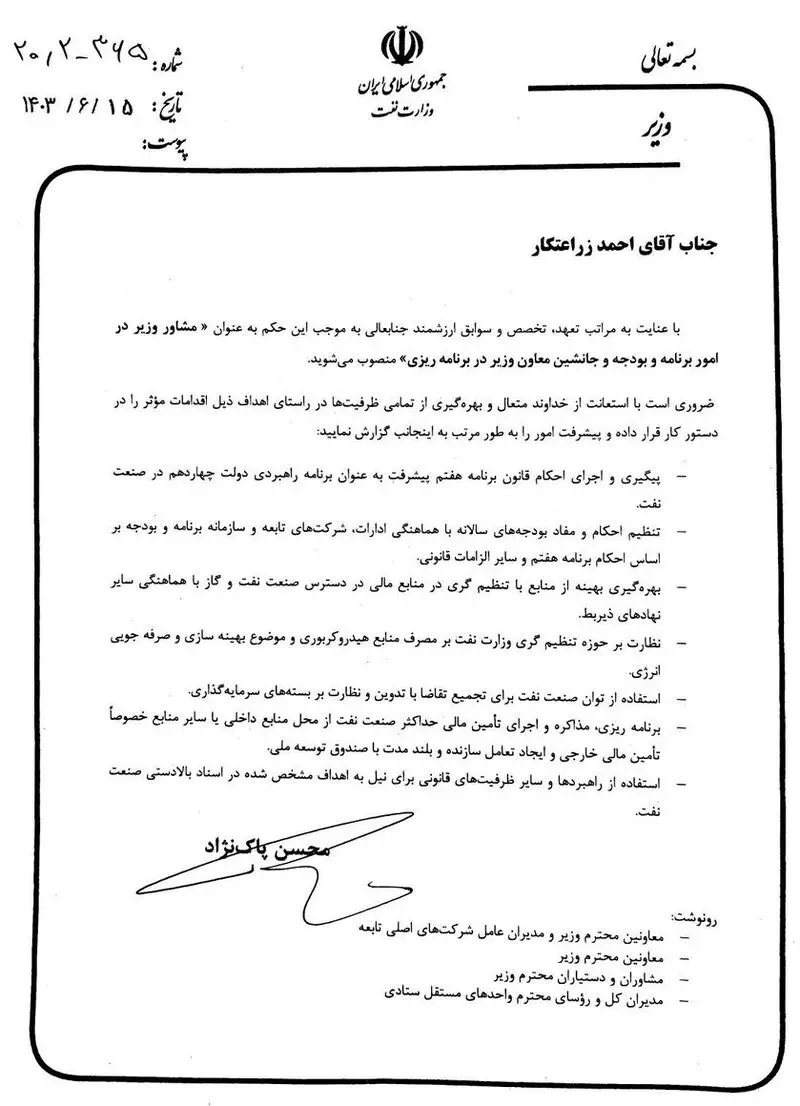 بسمه تعالی
جمهوری اسلامی ایران
وزارت نفت
وزیر
شماره: ۲۰٫۲-۳۶۵
تاریخ: ۱۴۰۳/۶/۱۵
پیوست:
جناب آقای احمد زراعتکار
با عنایت به مراتب تعهد، تخصص و سوابق ارزشمند جنابعالی به موجب این حکم به عنوان « مشاور وزیر در
امور برنامه و بودجه و جانشین معاون وزیر در برنامه ریزی» منصوب می‌شوید.
ضروری است با استعانت از خداوند متعال و بهره‌گیری از تمامی ظرفیت‌ها در راستای اهداف ذیل اقدامات مؤثر را در
دستور کار قرار داده و پیشرفت امور را به طور مرتب به اینجانب گزارش نمایید:
– پیگیری و اجرای احکام قانون برنامه هفتم پیشرفت به عنوان برنامه راهبردی دولت چهاردهم در صنعت
نفت.
– تنظیم احکام و مفاد بودجه‌های سالانه با هماهنگی ادارات، شرکت‌های تابعه و سازمانه برنامه و بودجه بر
اساس احکام برنامه هفتم و سایر الزامات قانونی.
– بهره‌گیری بهینه از منابع با تنظیم گری در منابع مالی در دسترس صنعت نفت و گاز با هماهنگی سایر
نهادهای ذیربط.
– نظارت بر حوزه تنظیم گری وزارت نفت بر مصرف منابع هیدروکربوری و موضوع بهینه سازی و صرفه جویی
انرژی.
– استفاده از توان صنعت نفت برای تجمیع تقاضا با تدوین و نظارت بر بسته‌های سرمایه‌گذاری.
– برنامه ریزی، مذاکره و اجرای تأمین مالی حداکثر صنعت نفت از محل منابع داخلی یا سایر منابع خصوصاً
تأمین مالی خارجی و ایجاد تعامل سازنده و بلند مدت با صندوق توسعه ملی.
– استفاده از راهبردها و سایر ظرفیت‌های قانونی برای نیل به اهداف مشخص شده در اسناد بالادستی صنعت
نفت.
محسن پاک‌نژاد
رونوشت:
– معاونین محترم وزیر و مدیران عامل شرکت‌های اصلی تابعه
– معاونین محترم وزیر
– مشاوران و دستیاران محترم وزیر
– مدیران کل و رؤسای محترم واحدهای مستقل ستادی